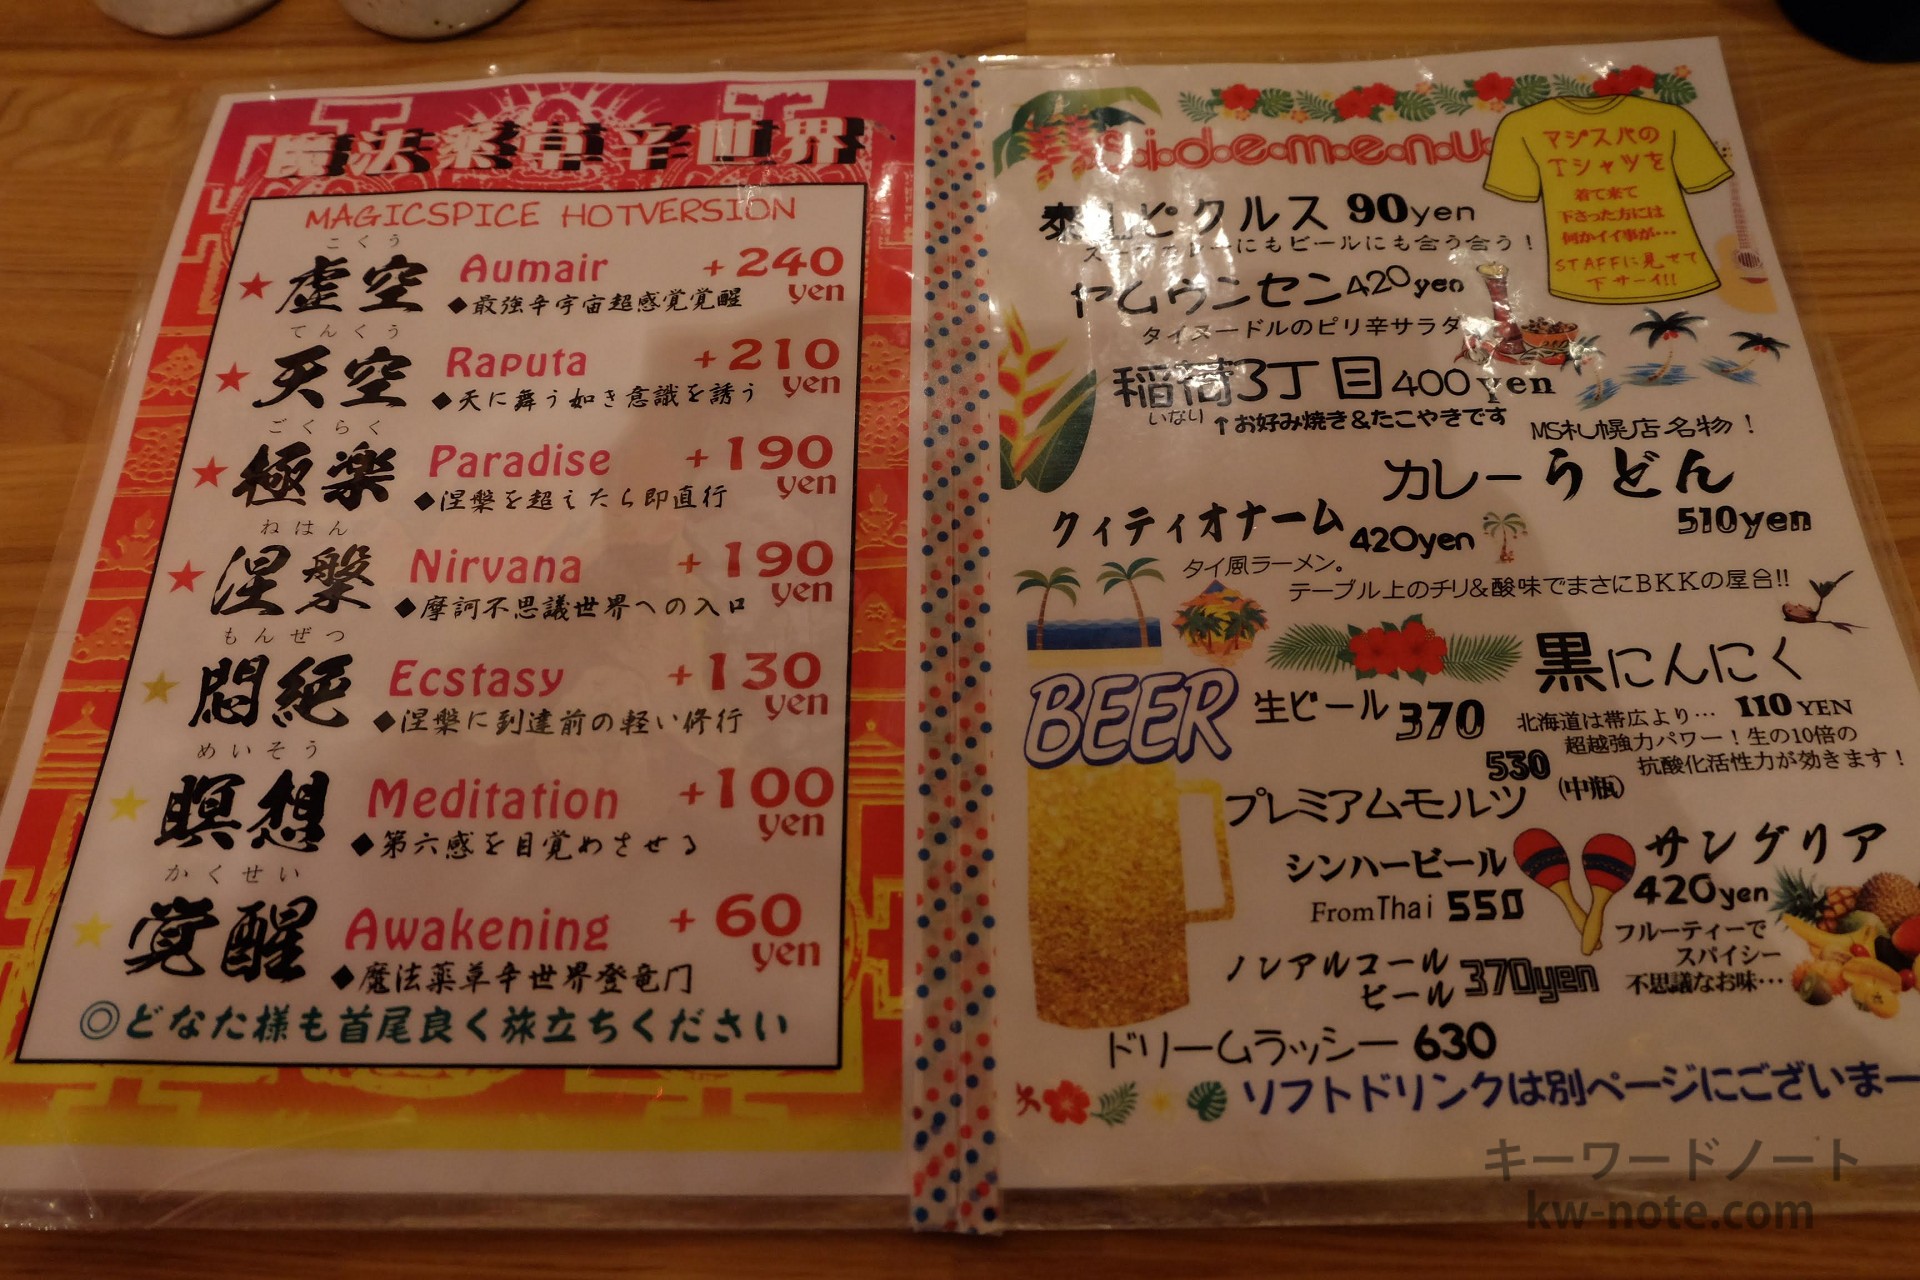 「魔法薬草辛世界
MAGICSPICE HOTVERSION
こくう
★虚空 Aumair +240 yen
◆最強辛宇宙超感覚覚醒
てんくう
★天空 Raputa +210 yen
◆天に舞う如き意識を誘う
ごくらく
★極楽 Paradise +190 yen
◆涅槃を超えたら即直行
ねはん
★涅槃 Nirvana +190 yen
◆摩訶不思議世界への入口
もんぜつ
★悶絶 Ecstasy +130 yen
◆涅槃に到達前の軽い修行
めいそう
★瞑想 Meditation +100 yen
◆第六感を目覚めさせる
かくせい
★覚醒 Awakening +60 yen
◆魔法薬草辛世界登竜門
◎どなた様も首尾良く旅立ちください
Sidemenu
マジスパの
Tシャツを
着て来て
下さった方には
何かイイ事が…
STAFFに見せて
下サーイ!!
ピクルス 90yen
にもビールにも合う合う!
ヤムウンセン420yen
タイヌードルのピリ辛サラダ
稲荷3丁目400yen
いなり ↑お好み焼き&たこやきです
MS札幌店名物!
カレーうどん
510yen
クィティオナーム 420yen
タイ風ラーメン。
テーブル上のチリ&酸味でまさにBKKの屋台!!
黒にんにく
110 YEN
北海道は帯広より…
超越強力パワー!生の10倍の
抗酸化活性力が効きます!
BEER
生ビール 370
530
プレミアムモルツ (中瓶)
シンハービール
From Thai 550
サングリア
420yen
フルーティーで
スパイシー
不思議なお味…
ノンアルコール
ビール 370yen
ドリームラッシー 630
ソフトドリンクは別ページにございまー
キーワードノート
kw-note.com